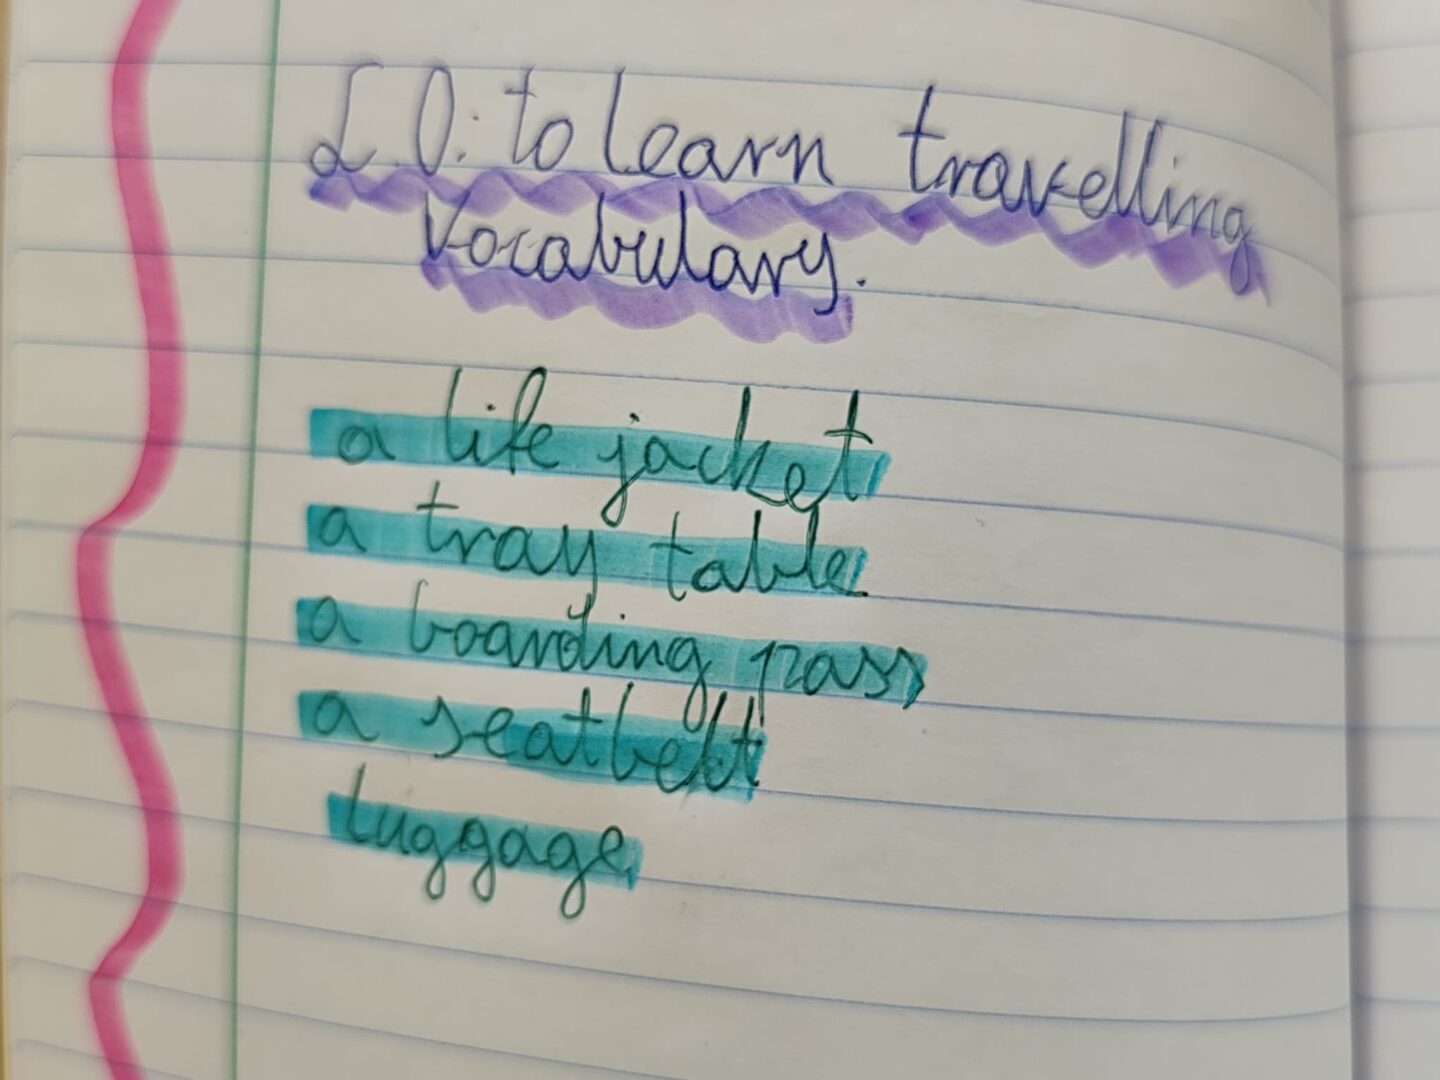 L.O.: to learn travelling
Vocabulary.
a life jacket
a tray table
a boarding pass
a seatbelt
luggage